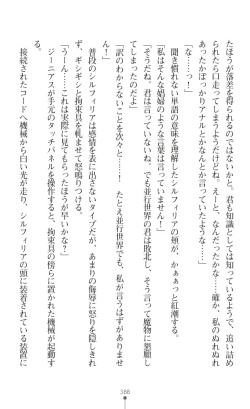 たほうが落差を得られるのではないかと思ってね。君も知識としては知っているようで、追い詰め
られたら口走ってしまうようだけど。えーと、なんだったかな……確か、私のぬれぬれ
あったかぽっかりアナルとかなんとか言っていたような……」
「な……っ！」
聞き慣れない単語の意味を理解したシルフィリアの頬が、かぁぁっと紅潮する。
「私はそんな娼婦のような言葉は言っていません！」
「そうだね。君は言っていないね。でも並行世界の君は敗北し、そう言って魔物に懇願し
てしまったのだよ」
「訳のわからないことを次々と……！　たとえ並行世界でも、私が言うはずがありませ
ん！」
普段のシルフィリアは感情を表に出さないタイプだが、あまりの侮辱に怒りを隠しきれ
ず、ギシギシと拘束具を軋ませて怒鳴りつける。
「うーん……これは実際に見てもらったほうが早いかな？」
ジーニアスが手元のタッチパネルを操作すると、拘束具の傍らに置かれた機械が起動す
る。
接続されたコードへ機械から白い光が走り、シルフィリアの頭に装着されている装置に
388